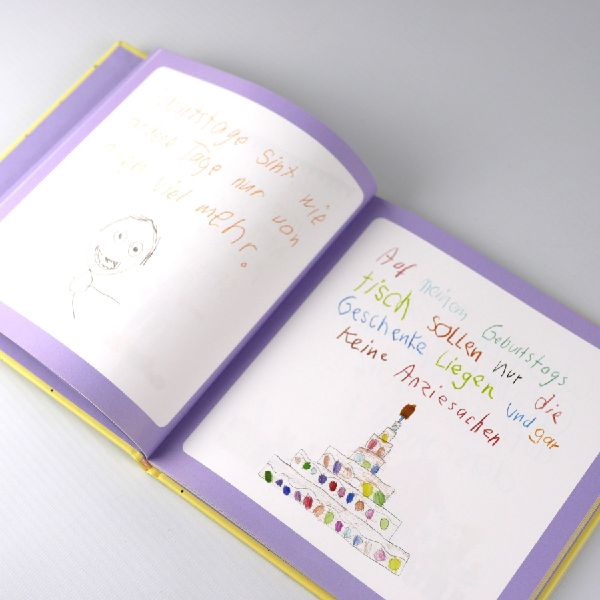 Geburtstage Sint wie
Tage nur von
viel mehr.
Auf meinem Geburtstags
tisch sollen nur die
Geschenke Liegen und gar
Keine Anziesachen